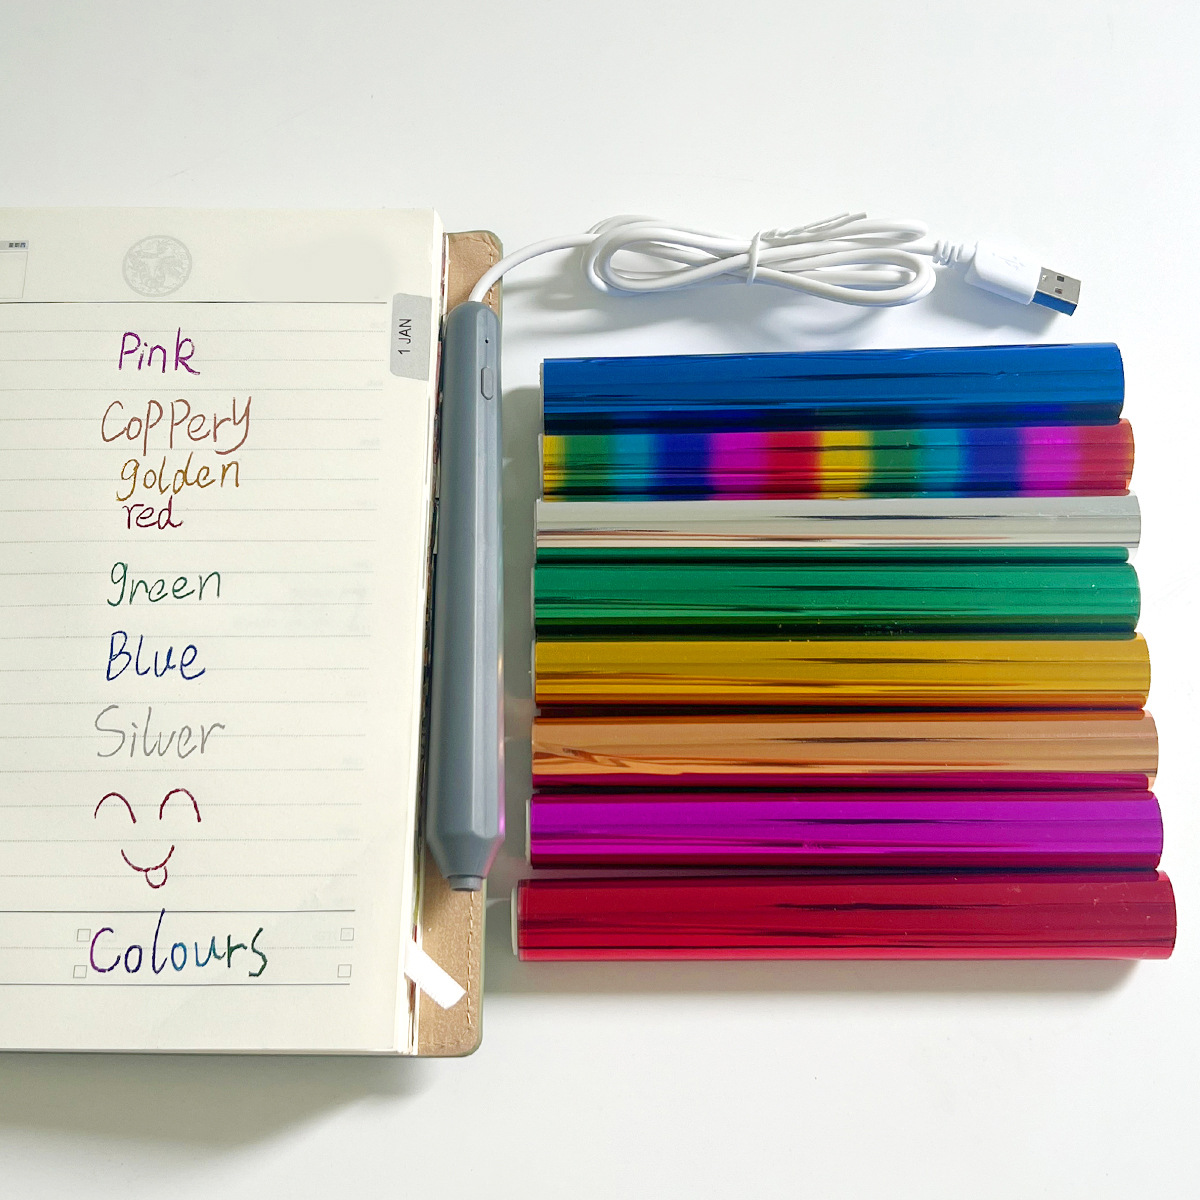 1 JAN
Pink
Coppery
golden
red
green
Blue
Silver
Colours